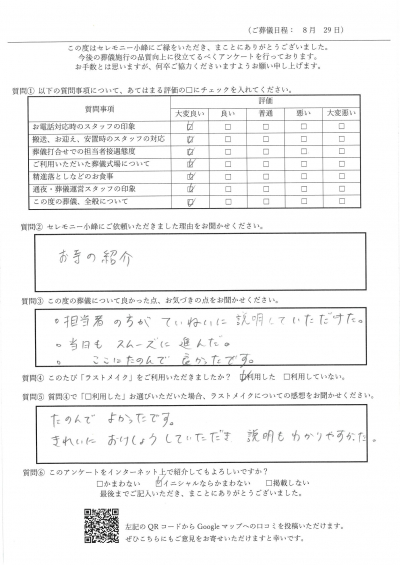 (ご葬儀日程: 8月 29日)
この度はセレモニー小峰にご縁をいただき、まことにありがとうございました。
今後の葬儀施行の品質向上に役立てるべくアンケートを行っております。
お手数とは思いますが、何卒ご協力くださいますようお願い申し上げます。
質問① 以下の質問事項について、あてはまる評価の□にチェックを入れてください。
質問事項 評価
大変良い 良い 普通 悪い 大変悪い
お電話対応時のスタッフの印象 ☑ □ □ □ □
搬送、お迎え、安置時のスタッフの対応 ☑ □ □ □ □
葬儀打合せでの担当者接遇態度 ☑ □ □ □ □
ご利用いただいた葬儀式場について ☑ □ □ □ □
精進落としなどのお食事 ☑ □ □ □ □
通夜・葬儀運営スタッフの印象 ☑ □ □ □ □
この度の葬儀、全般について ☑ □ □ □ □
質問② セレモニー小峰にご依頼いただきました理由をお聞かせください。
お寺の紹介
質問③ この度の葬儀について良かった点、お気づきの点をお聞かせください。
○担当者のちがていねいに説明していただけた。
○当日もスムーズに進んだ。
○ ここにたのんで良かったです。
質問④ このたび「ラストメイク」をご利用いただきましたか? ☑利用した □利用していない。
質問⑤ 質問④で「□利用した」お選びいただいた場合、ラストメイクについての感想をお聞かせください。
たのんで よかったです。
きれいに おけしょうしていただき 説明もわかりやすかった。
質問⑥ このアンケートをインターネット上で紹介してもよろしいですか?
□かまわない ☑イニシャルならかまわない □掲載しない
最後までご記入いただき、まことにありがとうございました。
左記のQRコードからGoogleマップへの口コミを投稿いただけます。
ぜひこちらにもご意見をお寄せいただけますと幸いです。